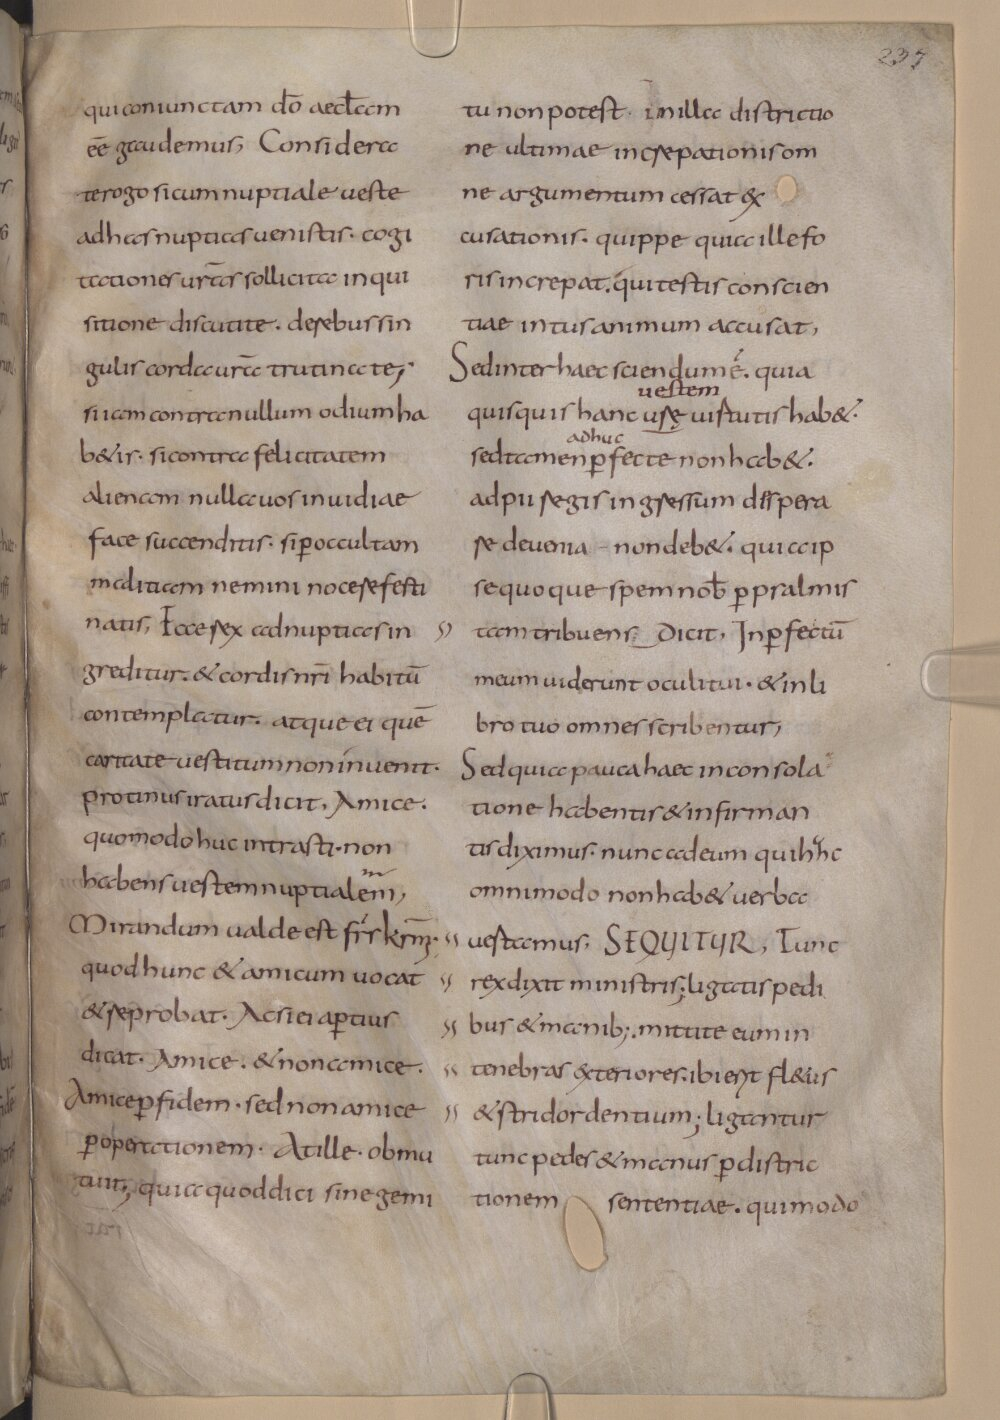 237
qui coniunctam dō aeclæam
eē gaudemus; Considera
te rogo si cum nuptiale ueste
ad has nuptias uenistis. cogi
tationes urās sollicita inqui
sitione discutite. de rebus sin
gulis corda urā trutinate;
si iam contra nullum odium ha
b&is. si contra felicitatem
alienam nulla uos inuidiae
face succenditis. si p occultam
malitiam nemini nocere festi
natis; Ecce rex ad nuptias in
greditur. & cordis nrī habitū
contemplatur. atque ei quē
caritate uestitum non inuenit.
protinus iratus dicit; Amice.
quomodo huc intrasti. non
habens uestem nuptialem;
Mirandum ualde est frs krmi.
quod hunc & amicum uocat
& reprobat. Ac si ei aptius
dicat. Amice. & non amice.
Amice p fidem. sed non amice
p operationem. At ille. obmu
tuit; quia quod dici sine gemi
tu non potest. in illa districtio
ne ultimae increpationis om
ne argumentum cessat ex
cusationis. quippe quia ille fo
ris increpat. qui testis conscien
tiae intus animum accusat;
Sed inter haec sciendum ē. quia
uestem
quisquis hanc use uirtutis hab&.
adhuc
sed tamen pfecte non hab&.
ad pii regis ingressum desspera
re deuenia non deb&. quia ip
se quoque spem nob p psalmis
tam tribuens; Dicit; Inpfectū
meum uiderunt oculi tui. & in li
bro tuo omnes scribentur;
Sed quia pauca haec in consola
tione habentis & infirman
tis diximus. nunc ad eum qui hanc
omnimodo non hab& uerba
uertamus; SEQUITUR; Tunc
rex dixit ministris; ligatis pedi
bus & manib;. mittite eum in
tenebras exteriores. ibi erit fl&us
& stridor dentium; ligantur
tunc pedes & manus p distric
tionem sententiae. qui modo